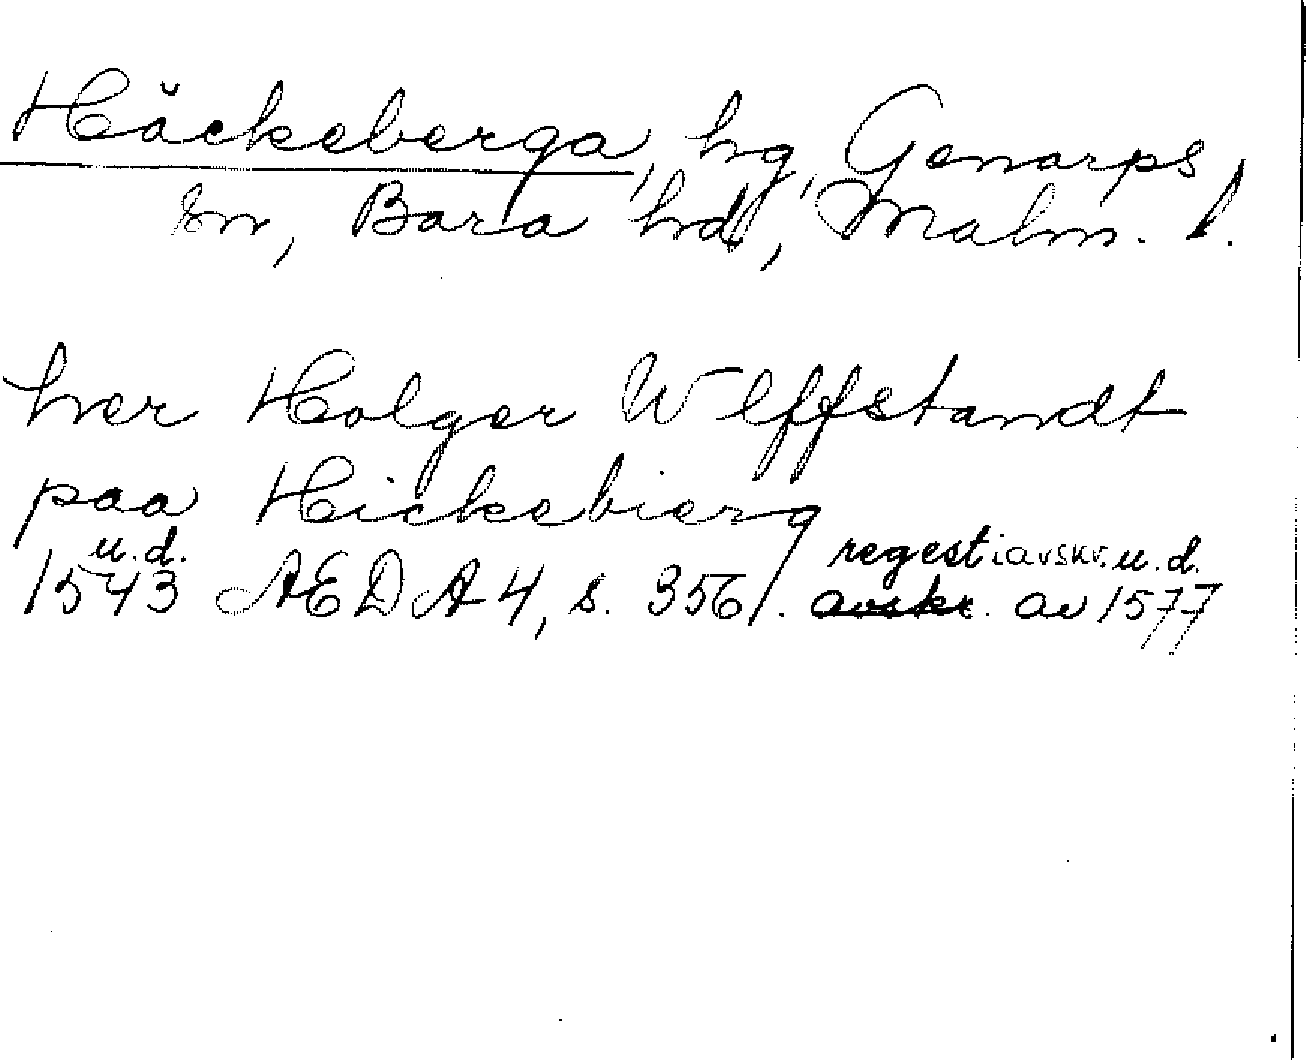 Häckeberga, hg, Genarps
sn, Bara hd, Malm. l.
her Holger Wlffstandt
paa Hickebierg
u.d. regest i avskr. u.d.
1543 AEDA 4, s. 356. avskr. av 1577